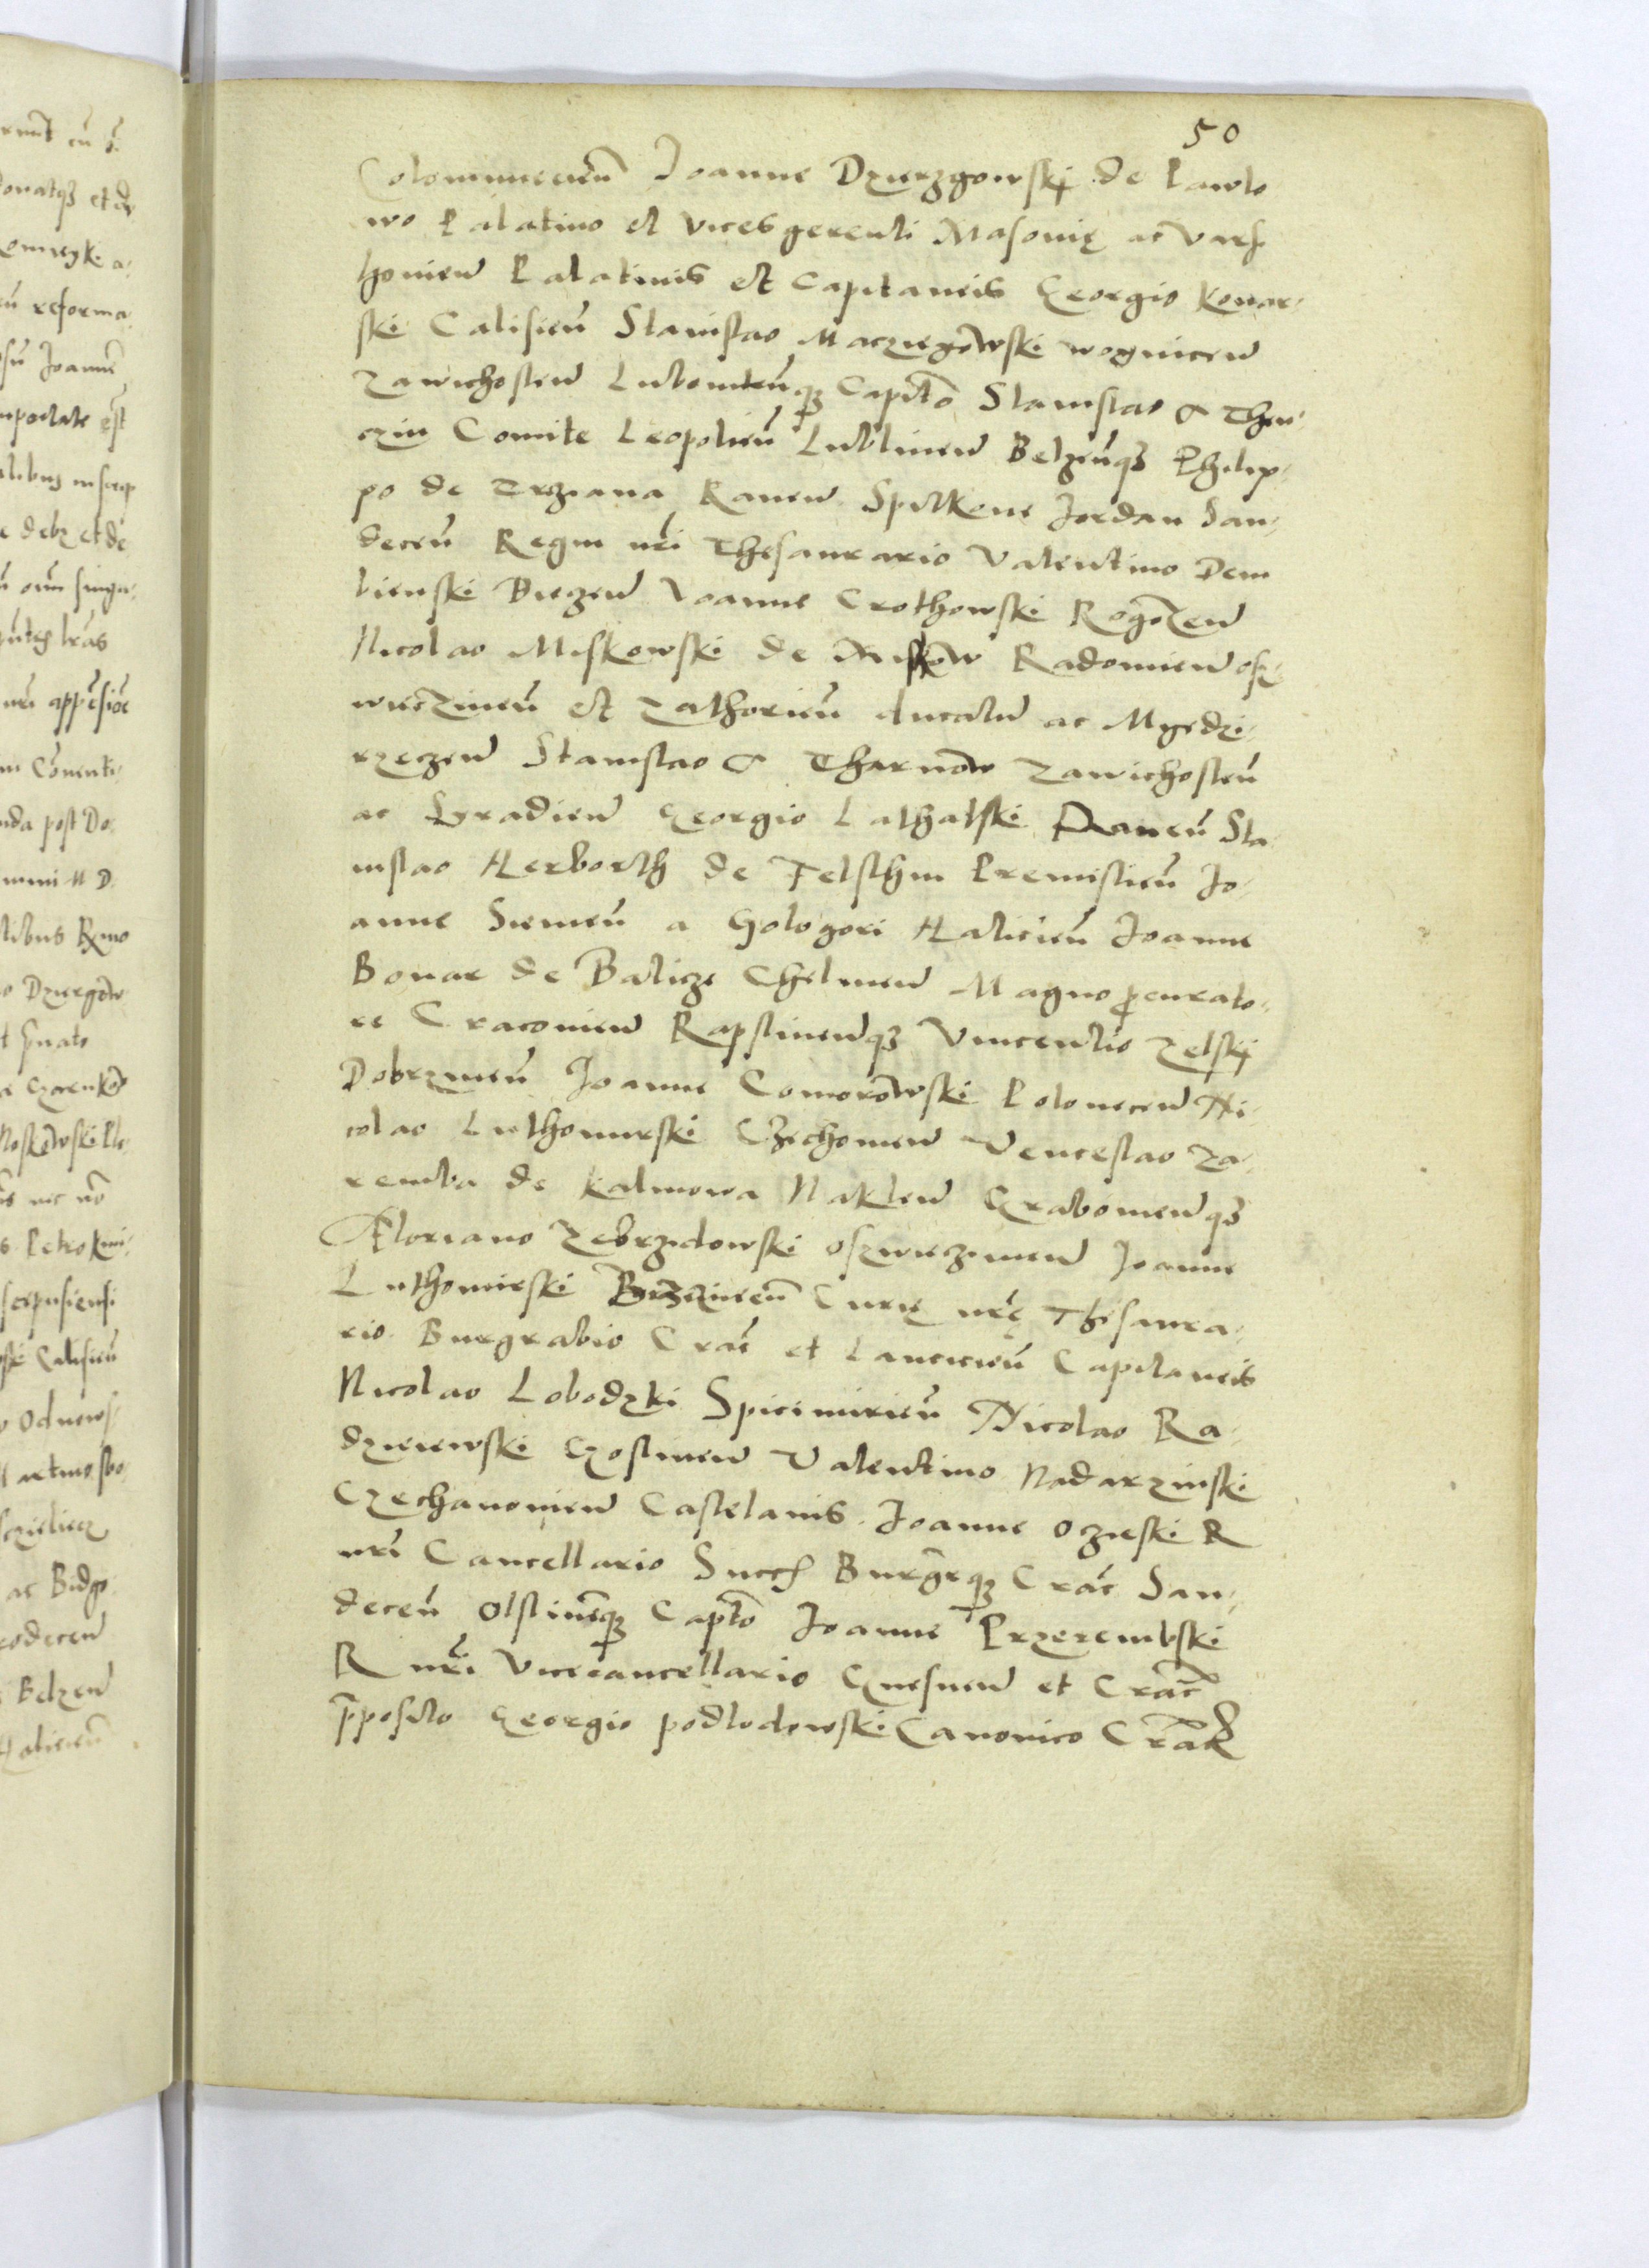 50
Colomiiecien̄ Joanne Dzierzgowskj de Pawlo
wo Palatino et vicesgerenti Masovię ac Vars
hovien̄ Palatinis et Capitaneis Georgio Konar-
ski Calisien̄ Stanislao Macziegowski wognicen̄
Zawichosten̄ Lutomien̄q3 Capit̄o Stanislao a Then-
czin Comite Leopolien̄ Lublinen̄ Belzen̄q3 Philip-
po de Trziana Raven̄ Spitkone Jordan San-
decen̄ Regni nr̄i Thesaurario Valentino Dem
bienski Biezen̄ Joanne Crothowski Rogozen̄
Nicolao Miskowski de Miskow Radomien̄ osz-
wieczinen̄ et Zathorien̄ ducatū ac Mgedzi-
rzeczen̄ Stanislao a Tharnow Zawichosten̄
ac Syradien̄ Georgio Lathalski Raven̄ Sta
nislao Herborth de Felsthin Premislien̄ Jo-
anne Siemien̄ a Gologori Halicien̄ Joanne
Bonar de Balicze Chelmen̄ Magno ꝓcurato-
re Cracovien̄ Rapstinen̄q3 Vincentio Zelskj
Dobrzinen̄ Joanne Comorowski Polonecen̄ Ni-
colao Luthomirski Czechovien̄ Venceslao Za-
remba de Kalinowa Naklen̄ Grabovien̄q3
Floriano Zebrzidowski oszwieczimen̄ Joanne
Luthomirski Brzezinen̄ Curię nr̄ę Thesaura-
rio Burgrabio Crac̄ et Lancicien̄ Capitaneis
Nicolao Lobodzki Spicimirien̄ Nicolao Ra-
dzieiewski Gostinen̄ Valentino Nadarzinski
Czechanovien̄ Castelanis Joanne Oczieski R
nr̄i Cancellario Succ̄ Burgr̄q3 Crac̄ San-
decen̄ Olstinēq3 Capt̄o Joanne Przerembski
R nr̄i Vicecancellario Gnesnen̄ et Crac̄
p̄posito Georgio podlodowski Canonico Crac̄